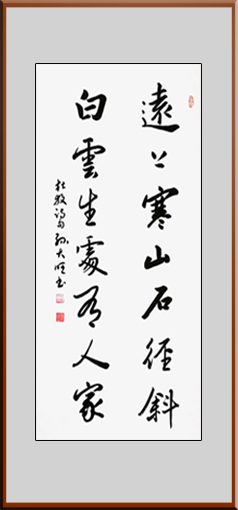 遠上寒山石徑斜
白雲生處有人家
杜牧詩句孫大書